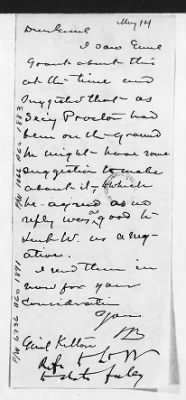 May 14
Dear Genl
I saw Genl
Grant about this
at the time and
suggested that as
Decig Procton had
been on the ground
he might have some
suggestion to make
about it, which
he agreed as no
reply was good to
Senk W. as a neg-
ative.
I send them in
now for your
consideration
Yours
Genl Kelton
P/W 1066 AGO 1883
P/W 6736 AGO 1891